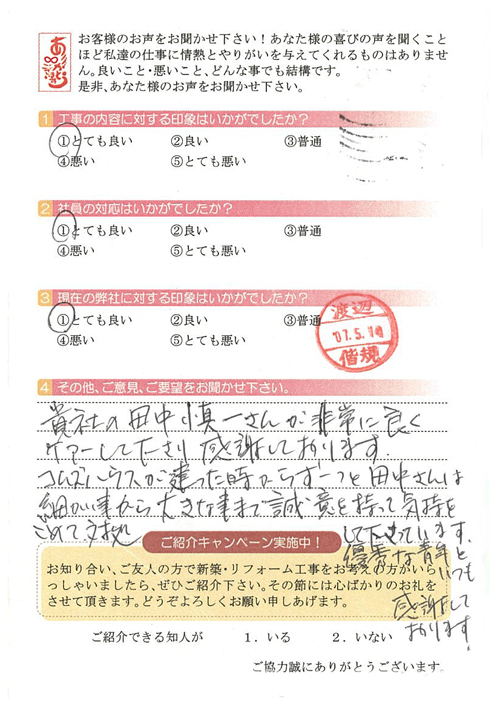 ありがとう
お客様のお声をお聞かせ下さい！あなた様の喜びの声を聞くこと
ほど私達の仕事に情熱とやりがいを与えてくれるものはありませ
ん。良いこと・悪いこと、どんな事でも結構です。
是非、あなた様のお声をお聞かせ下さい。
1 工事の内容に対する印象はいかがでしたか？
①とても良い ②良い ③普通
④悪い ⑤とても悪い
2 社員の対応はいかがでしたか？
①とても良い ②良い ③普通
④悪い ⑤とても悪い
3 現在の弊社に対する印象はいかがでしたか？
①とても良い ②良い ③普通
④悪い ⑤とても悪い
渡辺
'07.5.
偕規
4 その他、ご意見、ご要望をお聞かせ下さい。
貴社の田中慎一さんが非常に良く
ケアーして下さり感謝しております。
コムズハウスが建った時からずーっと田中さんは
細かい事から大きな事まで誠意を持って気持を
こめて対処して下さっています。
優秀な青年と
いつも
感謝して
おります。
ご紹介キャンペーン実施中！
お知り合い、ご友人の方で新築・リフォーム工事をお考えの方がいら
っしゃいましたら、ぜひご紹介下さい。その節には心ばかりのお礼を
させて頂きます。どうぞよろしくお願い申しあげます。
ご紹介できる知人が 1．いる 2．いない
ご協力誠にありがとうございます。